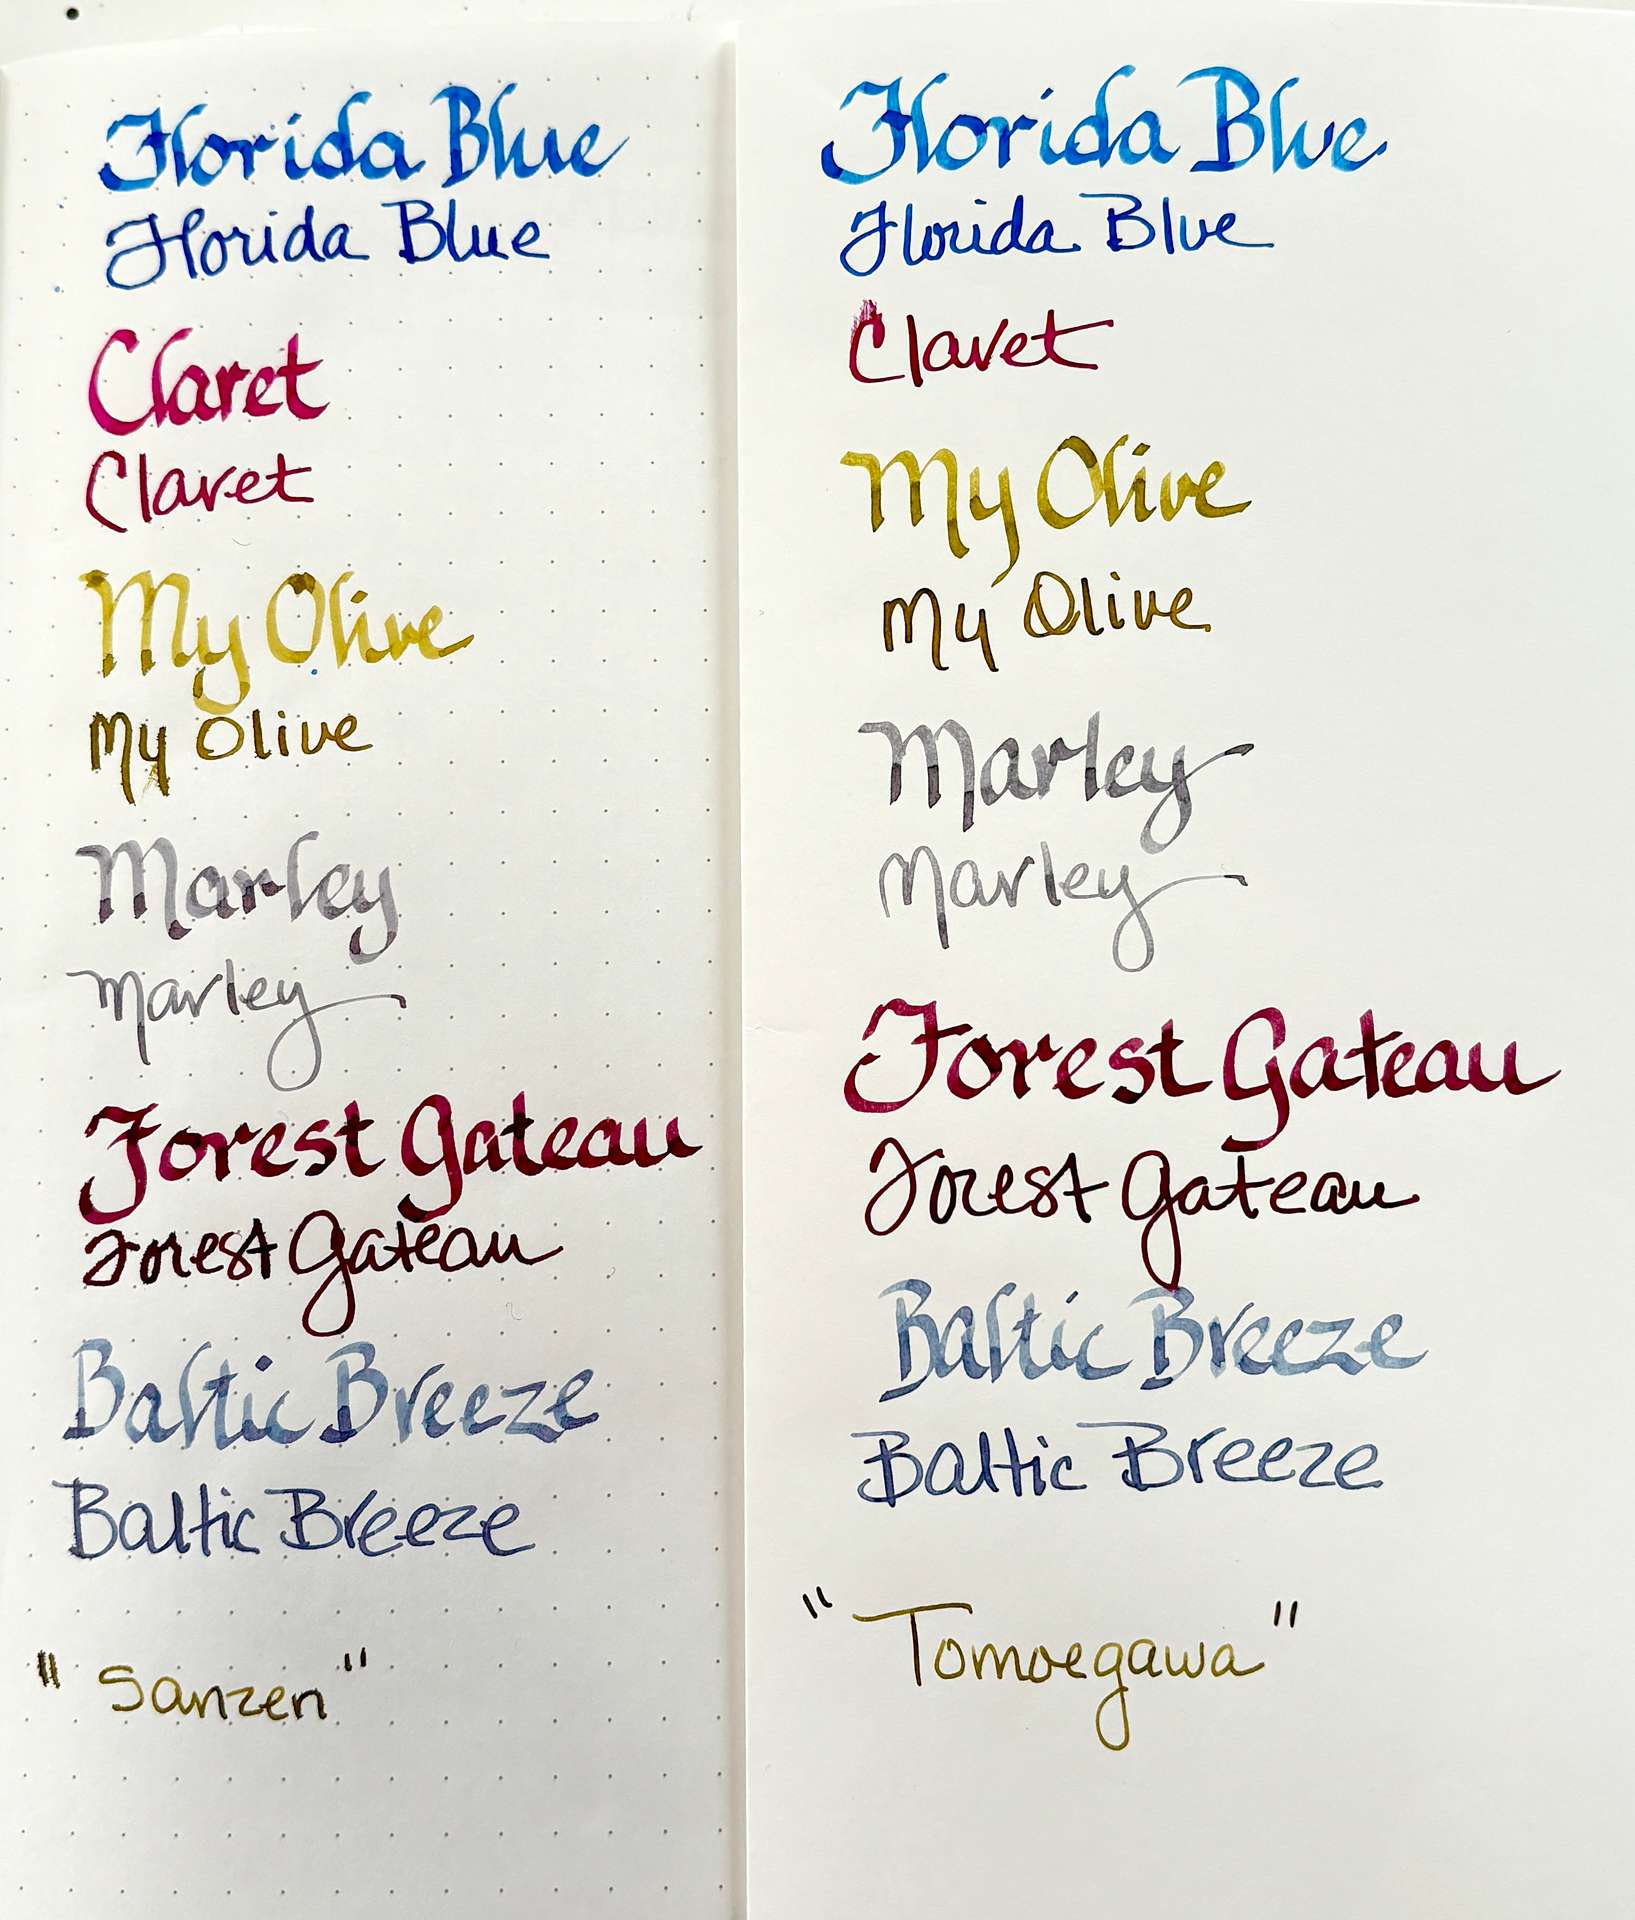 Florida Blue
Florida Blue
Claret
Claret
My Olive
My Olive
Marley
Marley
Forest Gateau
Forest Gateau
Baltic Breeze
Baltic Breeze
"Sanzen"
Florida Blue
Florida Blue
Claret
My Olive
My Olive
Marley
Marley
Forest Gateau
Forest Gateau
Baltic Breeze
Baltic Breeze
"Tomoegawa"